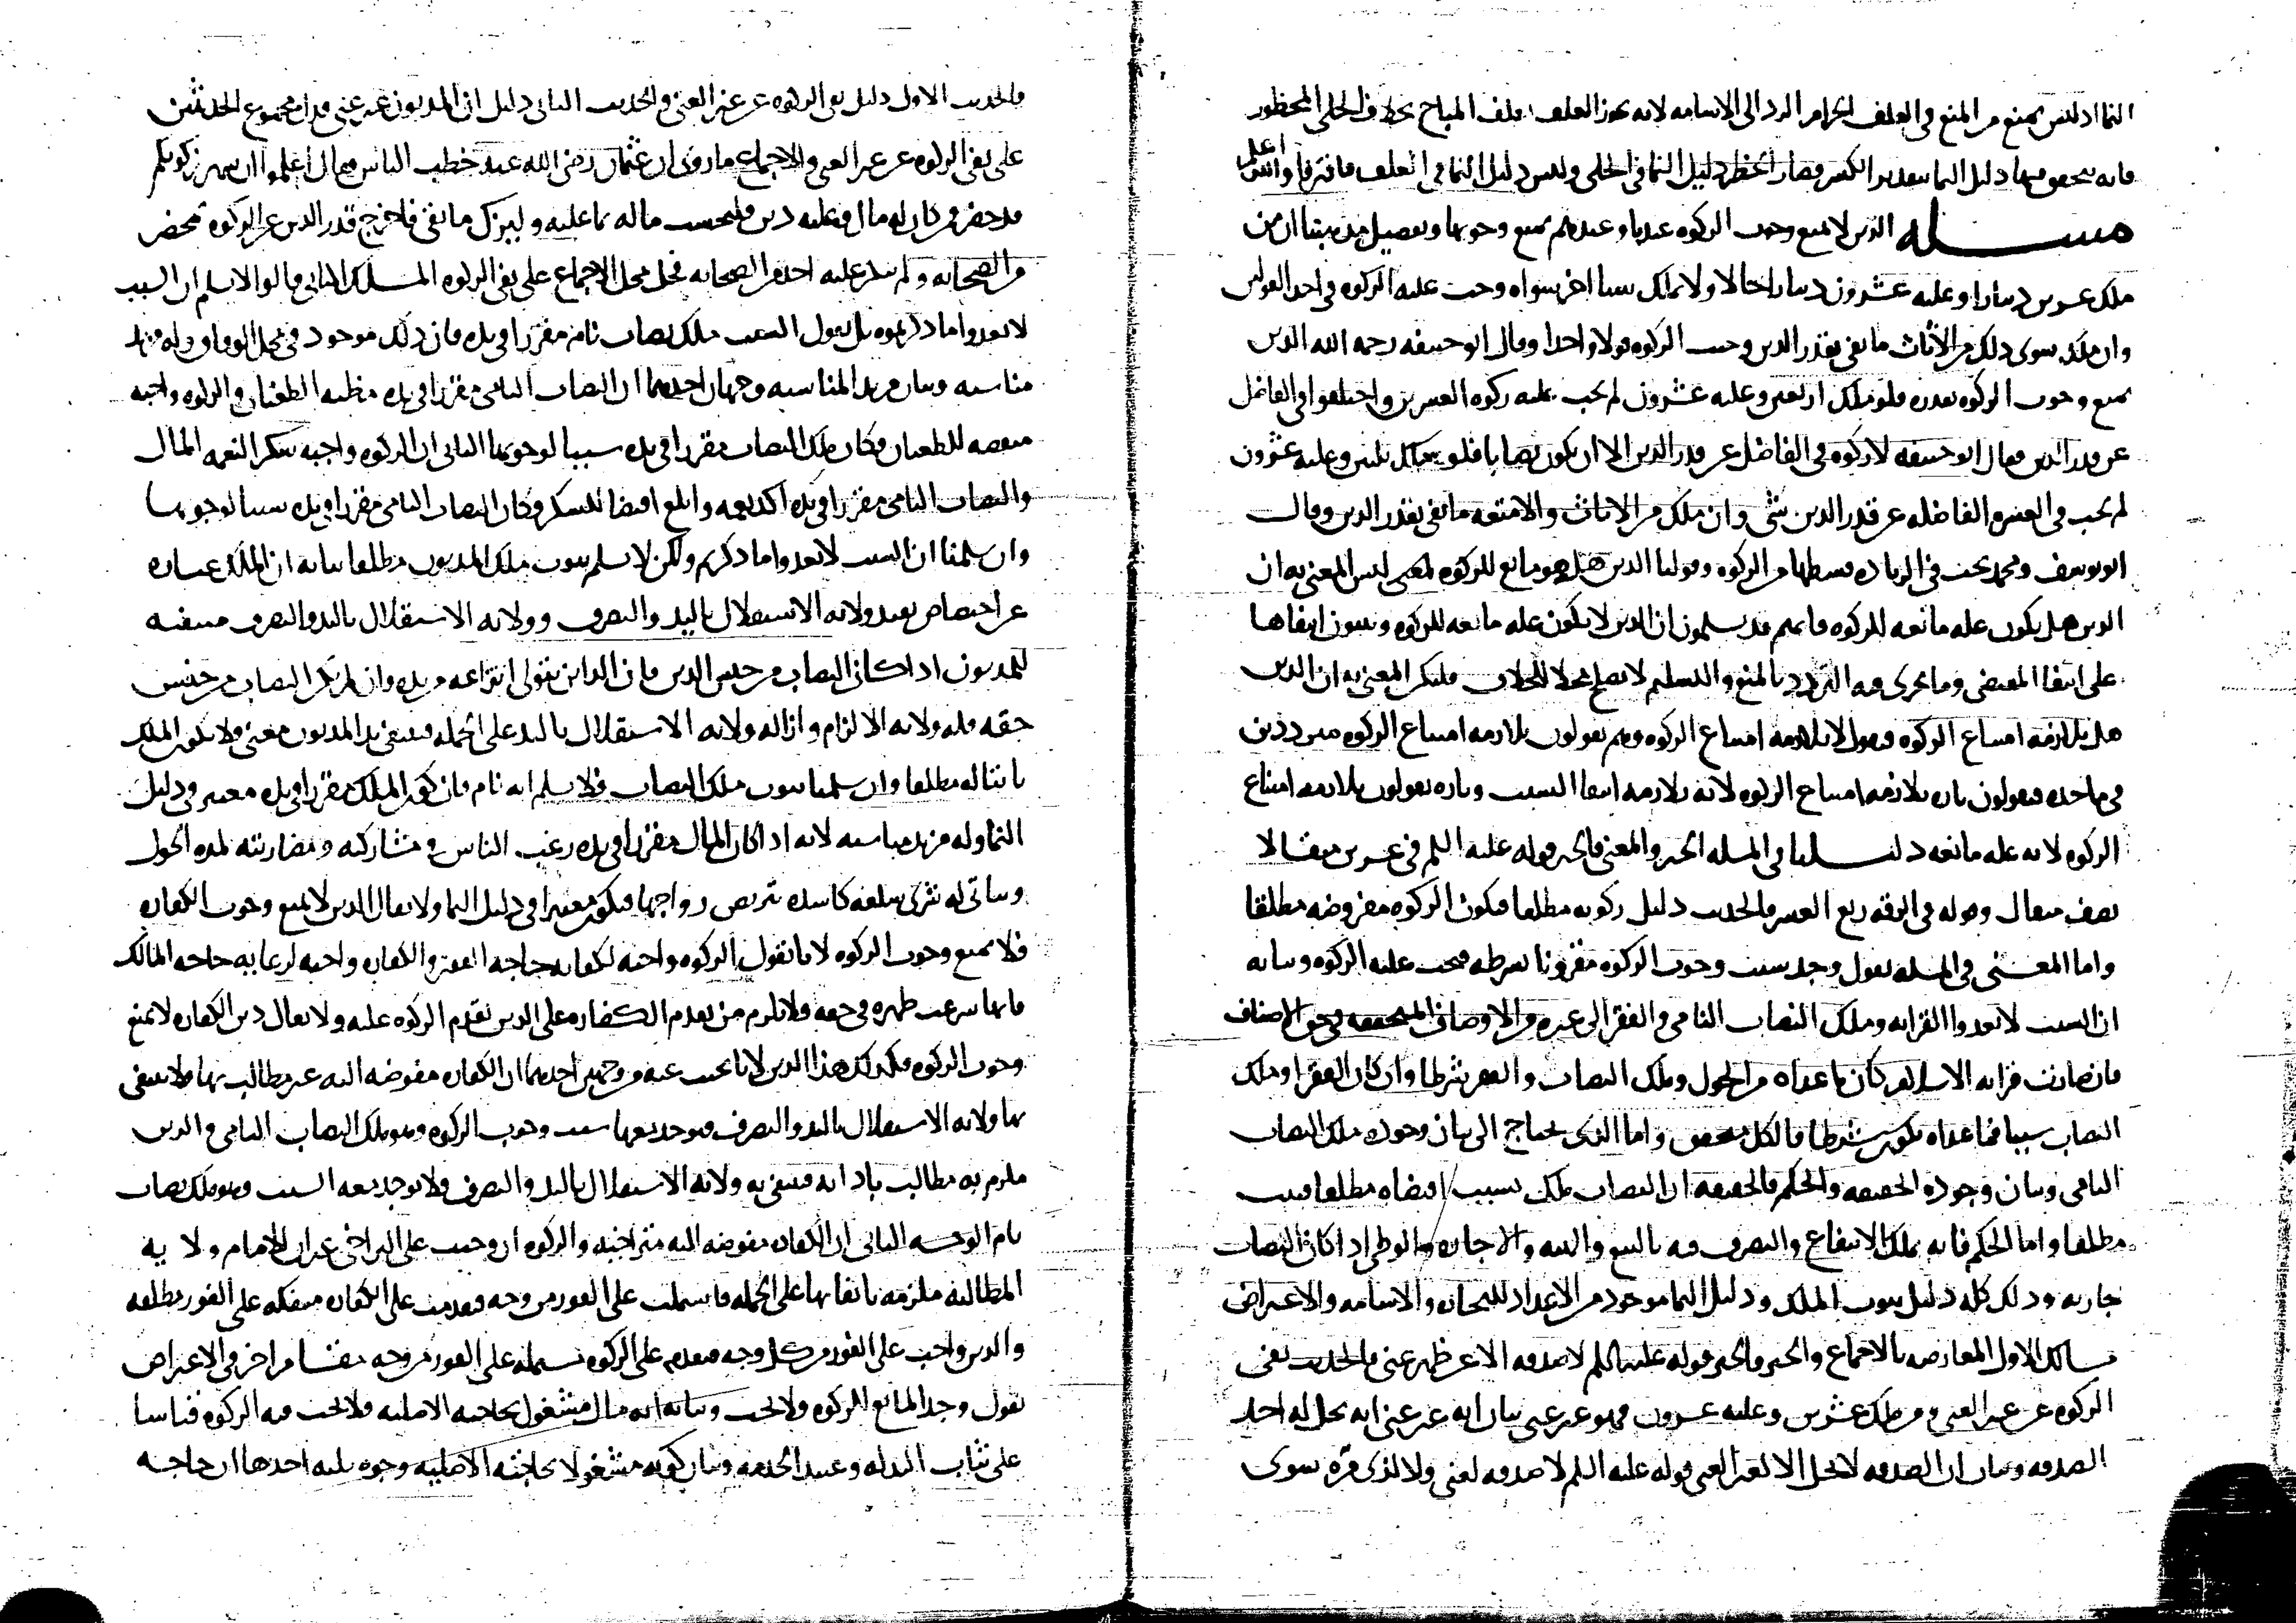 النما اذ ليس يمنع من المنع في العلف الحرام الرد الى الاسامه لانه يجوز العلف المباح بخلاف الحلي المحظور
فانه يتحقق فيها دليل النما بتقدير الكسر فصار الحظر دليل النما في الحلي وليس دليل النما في العلف فافترقا والله اعلم
مسله الدين لا يمنع وجوب الزكوه عندنا وعندهم يمنع وجوبها وتفصيل مذهبنا ان من
ملك عشرين دينارا وعليه عشرون دينارا حالا ولا يملك شيا اخر سواه وجبت عليه الزكوه في احد القولين
وان ملك سوى ذلك من الاثاث ما يفي بقدر الدين وجبت الزكوه قولا واحدا وقال ابو حنيفه رحمه الله الدين
يمنع وجوب الزكوه بقدره فلو ملك اربعين وعليه عشرون لم يجب عليه زكوه العشرين واختلفوا في الفاضل
عن قدر الدين فقال ابو حنيفه لا زكوه في الفاضل عن قدر الدين الا ان يكون نصابا فلو ملك ثلثين وعليه عشرون
لم يجب في العشره الفاضله عن قدر الدين شي وان ملك من الاثاث والامتعه ما يفي بقدر الدين وقال
ابو يوسف ومحمد يجب في الزياده قسطها من الزكوه وقولنا الدين هل هو مانع للزكوه لمعنى ليس المعني به ان
الدين هل يكون عله مانعه للزكوه فانهم قد يسلمون ان الدين لا يكون عله مانعه للزكوه وينبون انتفاها
على انتفا المقتضي وما يجري فيه التردد بالمنع والتسليم لا يصلح محلا للخلاف فليكن المعني به ان الدين
هل يلازمه امتناع الزكوه فنقول لا يلازمه امتناع الزكوه وهم يقولون يلازمه امتناع الزكوه مترددين
في ماخذه فيقولون تاره يلازمه امتناع الزكوه لانه يلازمه انتفا السبب وتاره يقولون يلازمه امتناع
الزكوه لانه عله مانعه دليلنا في المسله الخبر والمعنى فالخبر قوله عليه السلم في عشرين مثقالا
نصف مثقال وقوله في الرقه ربع العشر فالحديث دليل زكوته مطلقا فيكون الزكوه مفروضه مطلقا
واما المعنى في المسله نقول وجد سبب وجوب الزكوه مقرونا بشرطه فيجب عليه الزكوه وبيانه
ان السبب لا يعدوا القرابه وملك النصاب النامي والفقر الى غيره من الاوصاف المتحققه في حق الاصناف
فان كانت قرابه الاسلام كان ما عداه من الحول وملك النصاب والفقر شرطا وان كان الفقر او ملك
النصاب سببا فما عداه يكون شرطا فالكل متحقق واما الذي يحتاج الى بيان وجوده ملك النصاب
النامي وبيان وجوده الحقيقه والحكم فالحقيقه ان النصاب ملك بسبب افضاه مطلقا فيثبت
مطلقا واما الحكم فانه يملك الانتفاع والتصرف فيه بالبيع والهبه والاجاره والوطي اذا كان النصاب
جاريه وذلك كله دليل ثبوت الملك ودليل النما موجود من الاعداد للتجاره والاسامه والاعتراض
مسالك الاول المعارضه بالاجماع والخبر فالخبر قوله عليه السلم لا صدقه الا عن ظهر غنى فالحديث نفي
الزكوه عن غير الغني ومن ملك عشرين وعليه عشرون فهو غير غني بيان انه غير غني انه يحل له اخذ
الصدقه وبيان ان الصدقه لا يحل الا لغير الغني قوله عليه السلم لا صدقه لغني ولا لذي مره سوى
فالحديث الاول دليل نفي الزكوه عن غير الغني والحديث الثاني دليل ان المديون غير غني فدل مجموع الحديثين
على نفي الزكوه عن غير الغني والاجماع ما روي ان عثمان رضي الله عنه خطب الناس فقال اعلموا ان شهر زكوتكم
قد حضر فمن كان له مال وعليه دين فليحسب ماله بما عليه وليزك ما بقي فاخرج قدر الدين عن الزكوه بمحضر
من الصحابه ولم ينكر عليه احد من الصحابه فحل محل الاجماع على نفي الزكوه المسلك الثاني قالوا لا نسلم ان السبب
لا يعدوا ما ذكرتموه بل نقول السبب ملك نصاب نام مقررا في يده فان ذلك موجود في محل الوفاق وله مزيد
مناسبه وبيان مزيد المناسبه وجهان احدهما ان النصاب النامي مقررا في يده مظنه الطغيان والزكوه واجبه
منقصه للطغيان فكان ملك النصاب مقررا في يده سببا لوجوبها الثاني ان الزكوه واجبه شكر النعمه المال
والنصاب النامي مقررا في يده اكد نعمه وابلغ افضا للشكر فكان النصاب النامي مقررا في يده سببا لوجوبها
وان سلمنا ان السبب لا يعدوا ما ذكرتم ولكن لا نسلم ثبوت ملك المديون مطلقا بيانه ان الملك عباره
عن اختصاص يفيد ولايه الاستقلال باليد والتصرف وولايه الاستقلال باليد والتصرف منتفيه
للمديون اذا كان النصاب من جنس الدين فان الداين يتولى انتزاعه من يده وان لم يكن النصاب من جنس
حقه فله ولايه الالزام وازاله ولايه الاستقلال باليد على الجمله فينتفي يد المديون معنى فلا يكون الملك
ثابتا له مطلقا وان سلمنا ثبوت ملك النصاب فلا نسلم انه نام فان كون الملك مقررا في يده معتبر في دليل
النما وله مزيد مناسبه لانه اذا كان المال مقررا في يده رغب الناس في مشاركته ومضاربته لمده الحول
ويتاتى له شرى سلعه كاسده يتربص رواجها فيكون معتبرا في دليل النما ولا يقال الدين لا يمنع وجوب الكفاره
فلا يمنع وجوب الزكوه لانا نقول الزكوه واجبه لكفايه حاجه الفقير والكفاره واجبه لرعايه حاجه المالك
فانها شرعت طهره في حقه فلا يلزم من تقدم الكفاره على الدين تقدم الزكوه عليه ولا يقال دين الكفاره لا يمنع
وجوب الزكوه فكذلك هذا الدين لانا نجيب عنه من وجهين احدهما ان الكفاره مفوضه اليه غير مطالب بها فلا ينتفي
بها ولايه الاستقلال باليد والتصرف فيوجد معها سبب وجوب الزكوه وهو ملك النصاب النامي والدين
ملزم به مطالب بادايه فينتفي به ولايه الاستقلال باليد والتصرف فلا يوجد معه السبب وهو ملك نصاب
نام الوجه الثاني ان الكفاره مفوضه اليه متراخيه والزكوه ان وجبت على التراخي غير ان للامام ولايه
المطالبه ملزمه بايفايها على الجمله فاشتملت على الفور من وجه فقدمت على الكفاره منفكه على الفور مطلقه
والدين واجب على الفور من كل وجه فيقدم على الزكوه مشتمله على الفور من وجه مقام اخر في الاعتراض
نقول وجد المانع للزكوه فلا يجب وبيانه انه مال مشغول بحاجته الاصليه فلا يجب فيه الزكوه قياسا
على ثياب البذله وعبيد الخدمه وبيان كونه مشغولا بحاجته الاصليه وجوه ثلثه احدها ان حاجه